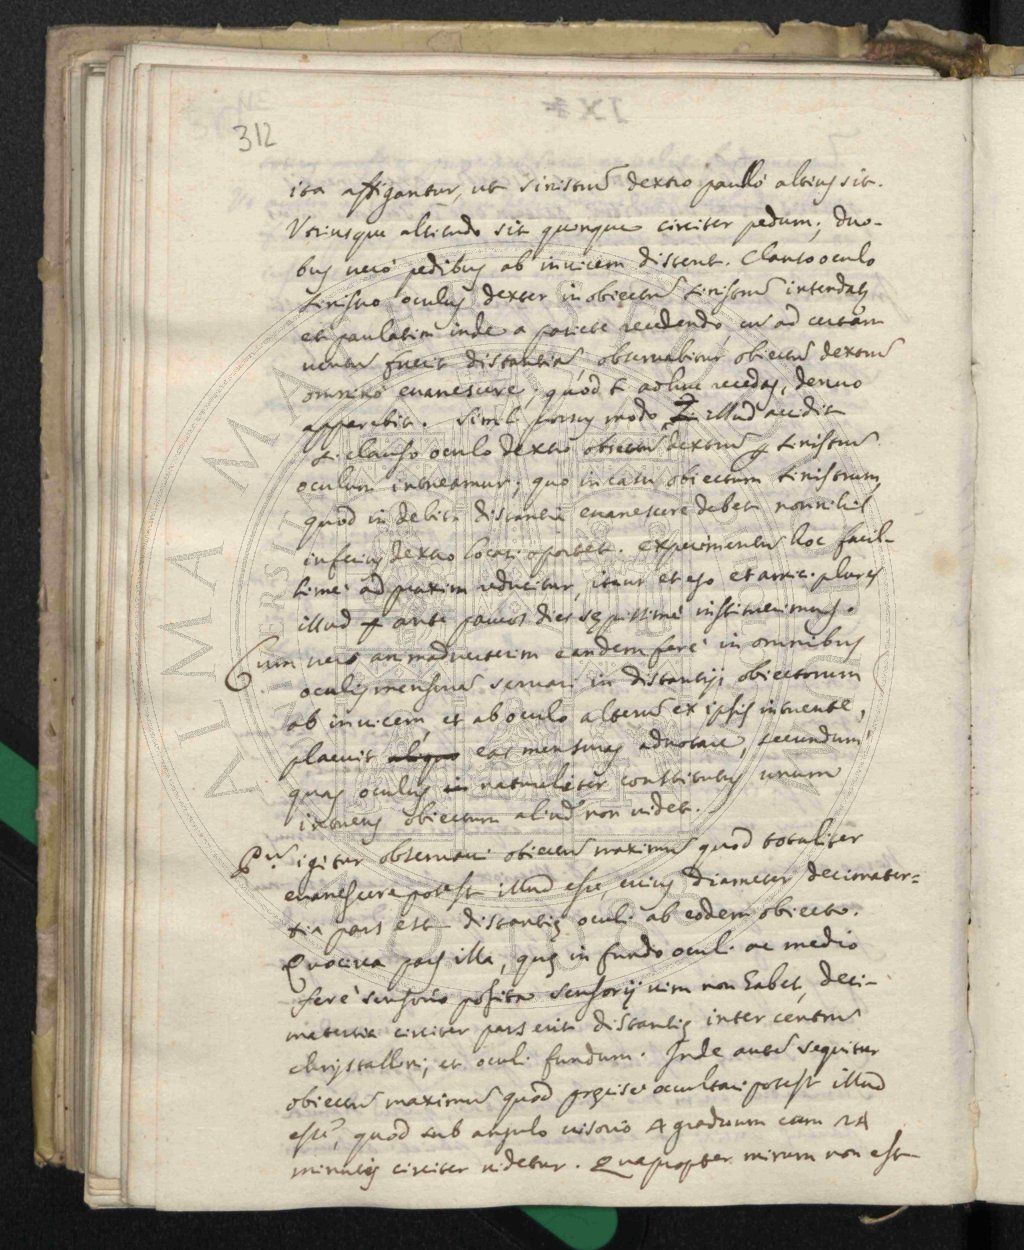 312
ita affigantur, ut sinistrũ dextro paulló altius sit.
Vtriusque altitudo sit quinque circiter pedum; duo-
bus verò pedibus ab invicem distent. Clauso oculo
sinistro oculus dexter in obiectũ sinistrũ intendat;
et paulatim inde a pariete recedendo, cũ ad certam
ventũ fuerit distantiã, observabitur obiectũ dextrũ
omninò evanescere, quòd si adhuc recedas, denuo
apparebit. Simili prorsus modo illud accidit
si clauso oculo dextro obiectũ dextrũ sinistrũ
oculum intueamur; quo in casu obiectum sinistrum,
quod in debita distantia evanescere debet nonnihil
inferius dextro locari oportet. Experimentũ hoc facil-
limè ad praxim reducitur, sicut et ego et amici plures
illud ante paucos dies sępissimè instituerimus.
Cum vero animadverterim eandem ferè in omnibus
oculis mensurã servari in distantijs obiectorum
ab invicem et ab oculo alterũ ex ipsis intuente,
placuit eas mensuras adnotare, secundum
quas oculus naturaliter constitutus unum
intuens obiectum aliud non videt.
Pũ igitur observavi obiectũ maximũ quod totaliter
evanescere potest illud esse, cuius diameter decimater=
tia pars est distantię oculi ab eodem obiecto.
Quocirca pars illa, quę in fundo oculi ac medio
ferè sensorio posita sensorij vim non habet, deci-
matertia circiter pars erit distantię inter centrũ
chrystallini, et oculi fundum. Inde autẽ sequitur
obiectũ maximũ quod pręcise occultari potest illud
esse, quod sub angulo visorio 4 graduum cum 24
minutis circiter videtur. Quapropter mirum non est
ALMA MATER STUDIORUM